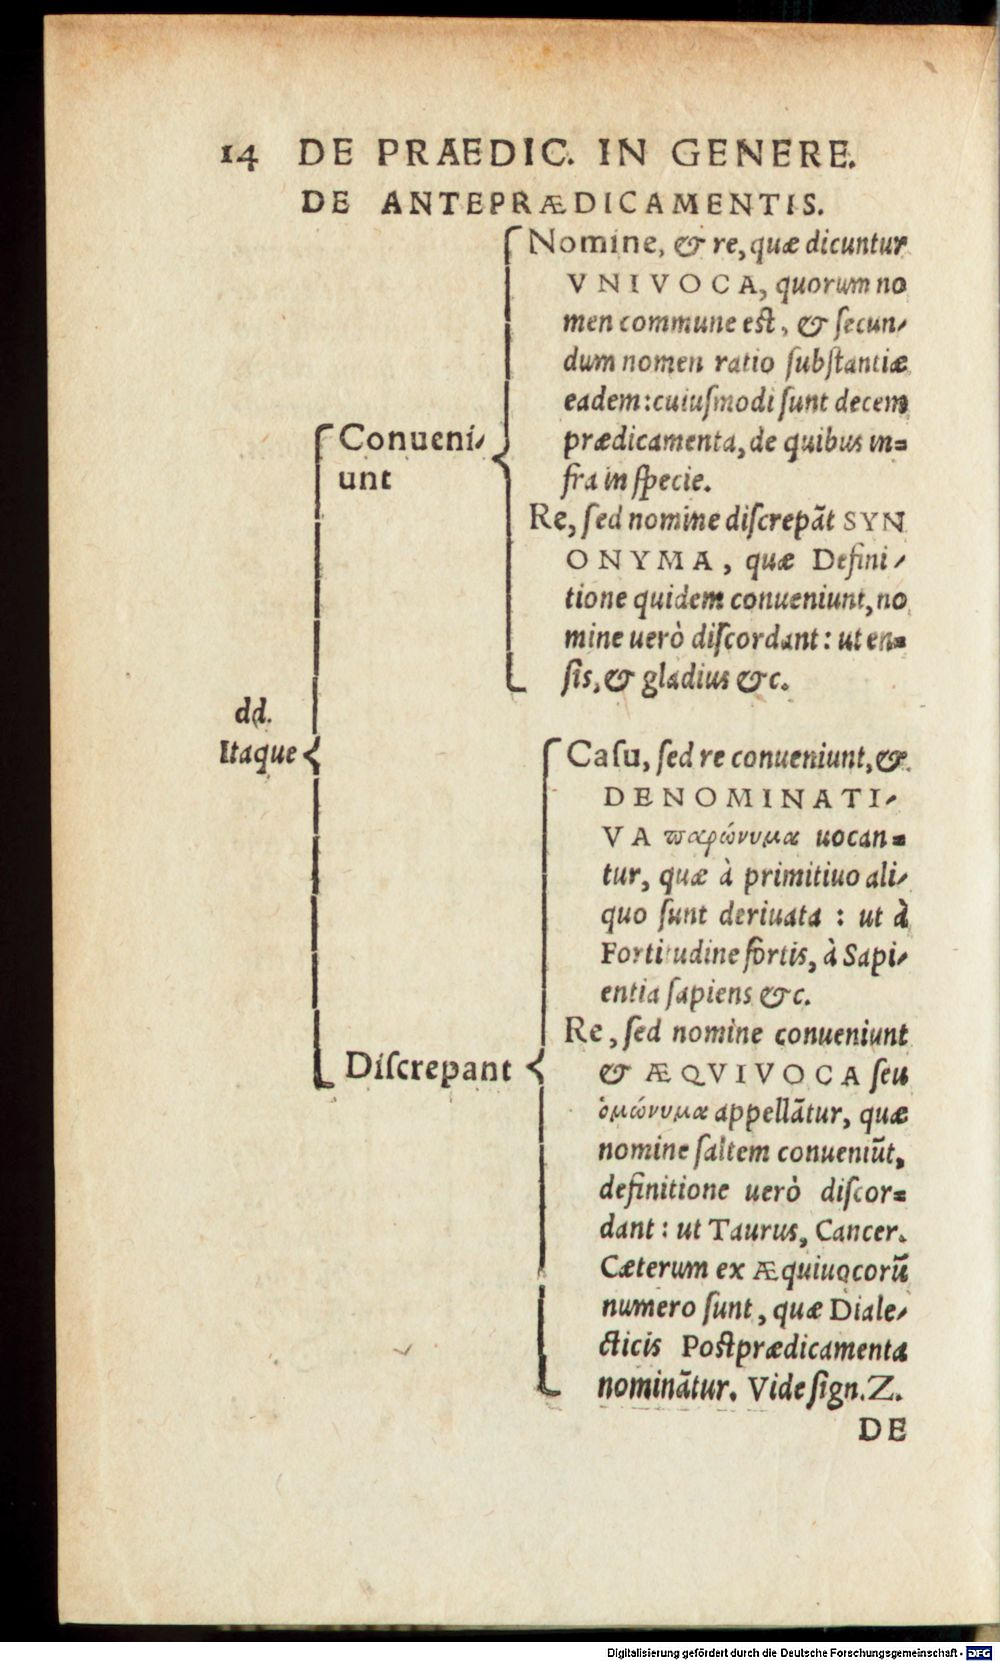 14 DE PRAEDIC. IN GENERE.
DE ANTEPRÆDICAMENTIS.
dd.
Itaque
Conueni-
unt
Nomine, & re, quæ dicuntur
VNIVOCA, quorum no
men commune est, & ſecun-
dum nomen ratio ſubſtantiæ
eadem: cuiuſmodi ſunt decem
prædicamenta, de quibus in-
fra in ſpecie.
Re, ſed nomine diſcrepāt SYN
ONYMA, quæ Defini-
tione quidem conueniunt, no
mine uerò diſcordant: ut en-
ſis, & gladius &c.
Diſcrepant
Caſu, ſed re conueniunt, &
DENOMINATI-
VA παρώνυμα uocan-
tur, quæ à primitiuo ali-
quo ſunt deriuata : ut à
Fortitudine fortis, à Sapi-
entia ſapiens &c.
Re, ſed nomine conueniunt
& ÆQVIVOCA ſeu
ὁμώνυμα appellātur, quæ
nomine ſaltem conueniūt,
definitione uerò diſcor-
dant: ut Taurus, Cancer.
Cæterum ex Æquiuocorū
numero ſunt, quæ Diale-
cticis Poſtprædicamenta
nominātur. Vide ſign. Z.
DE
Digitalisierung gefördert durch die Deutsche Forschungsgemeinschaft - DFG